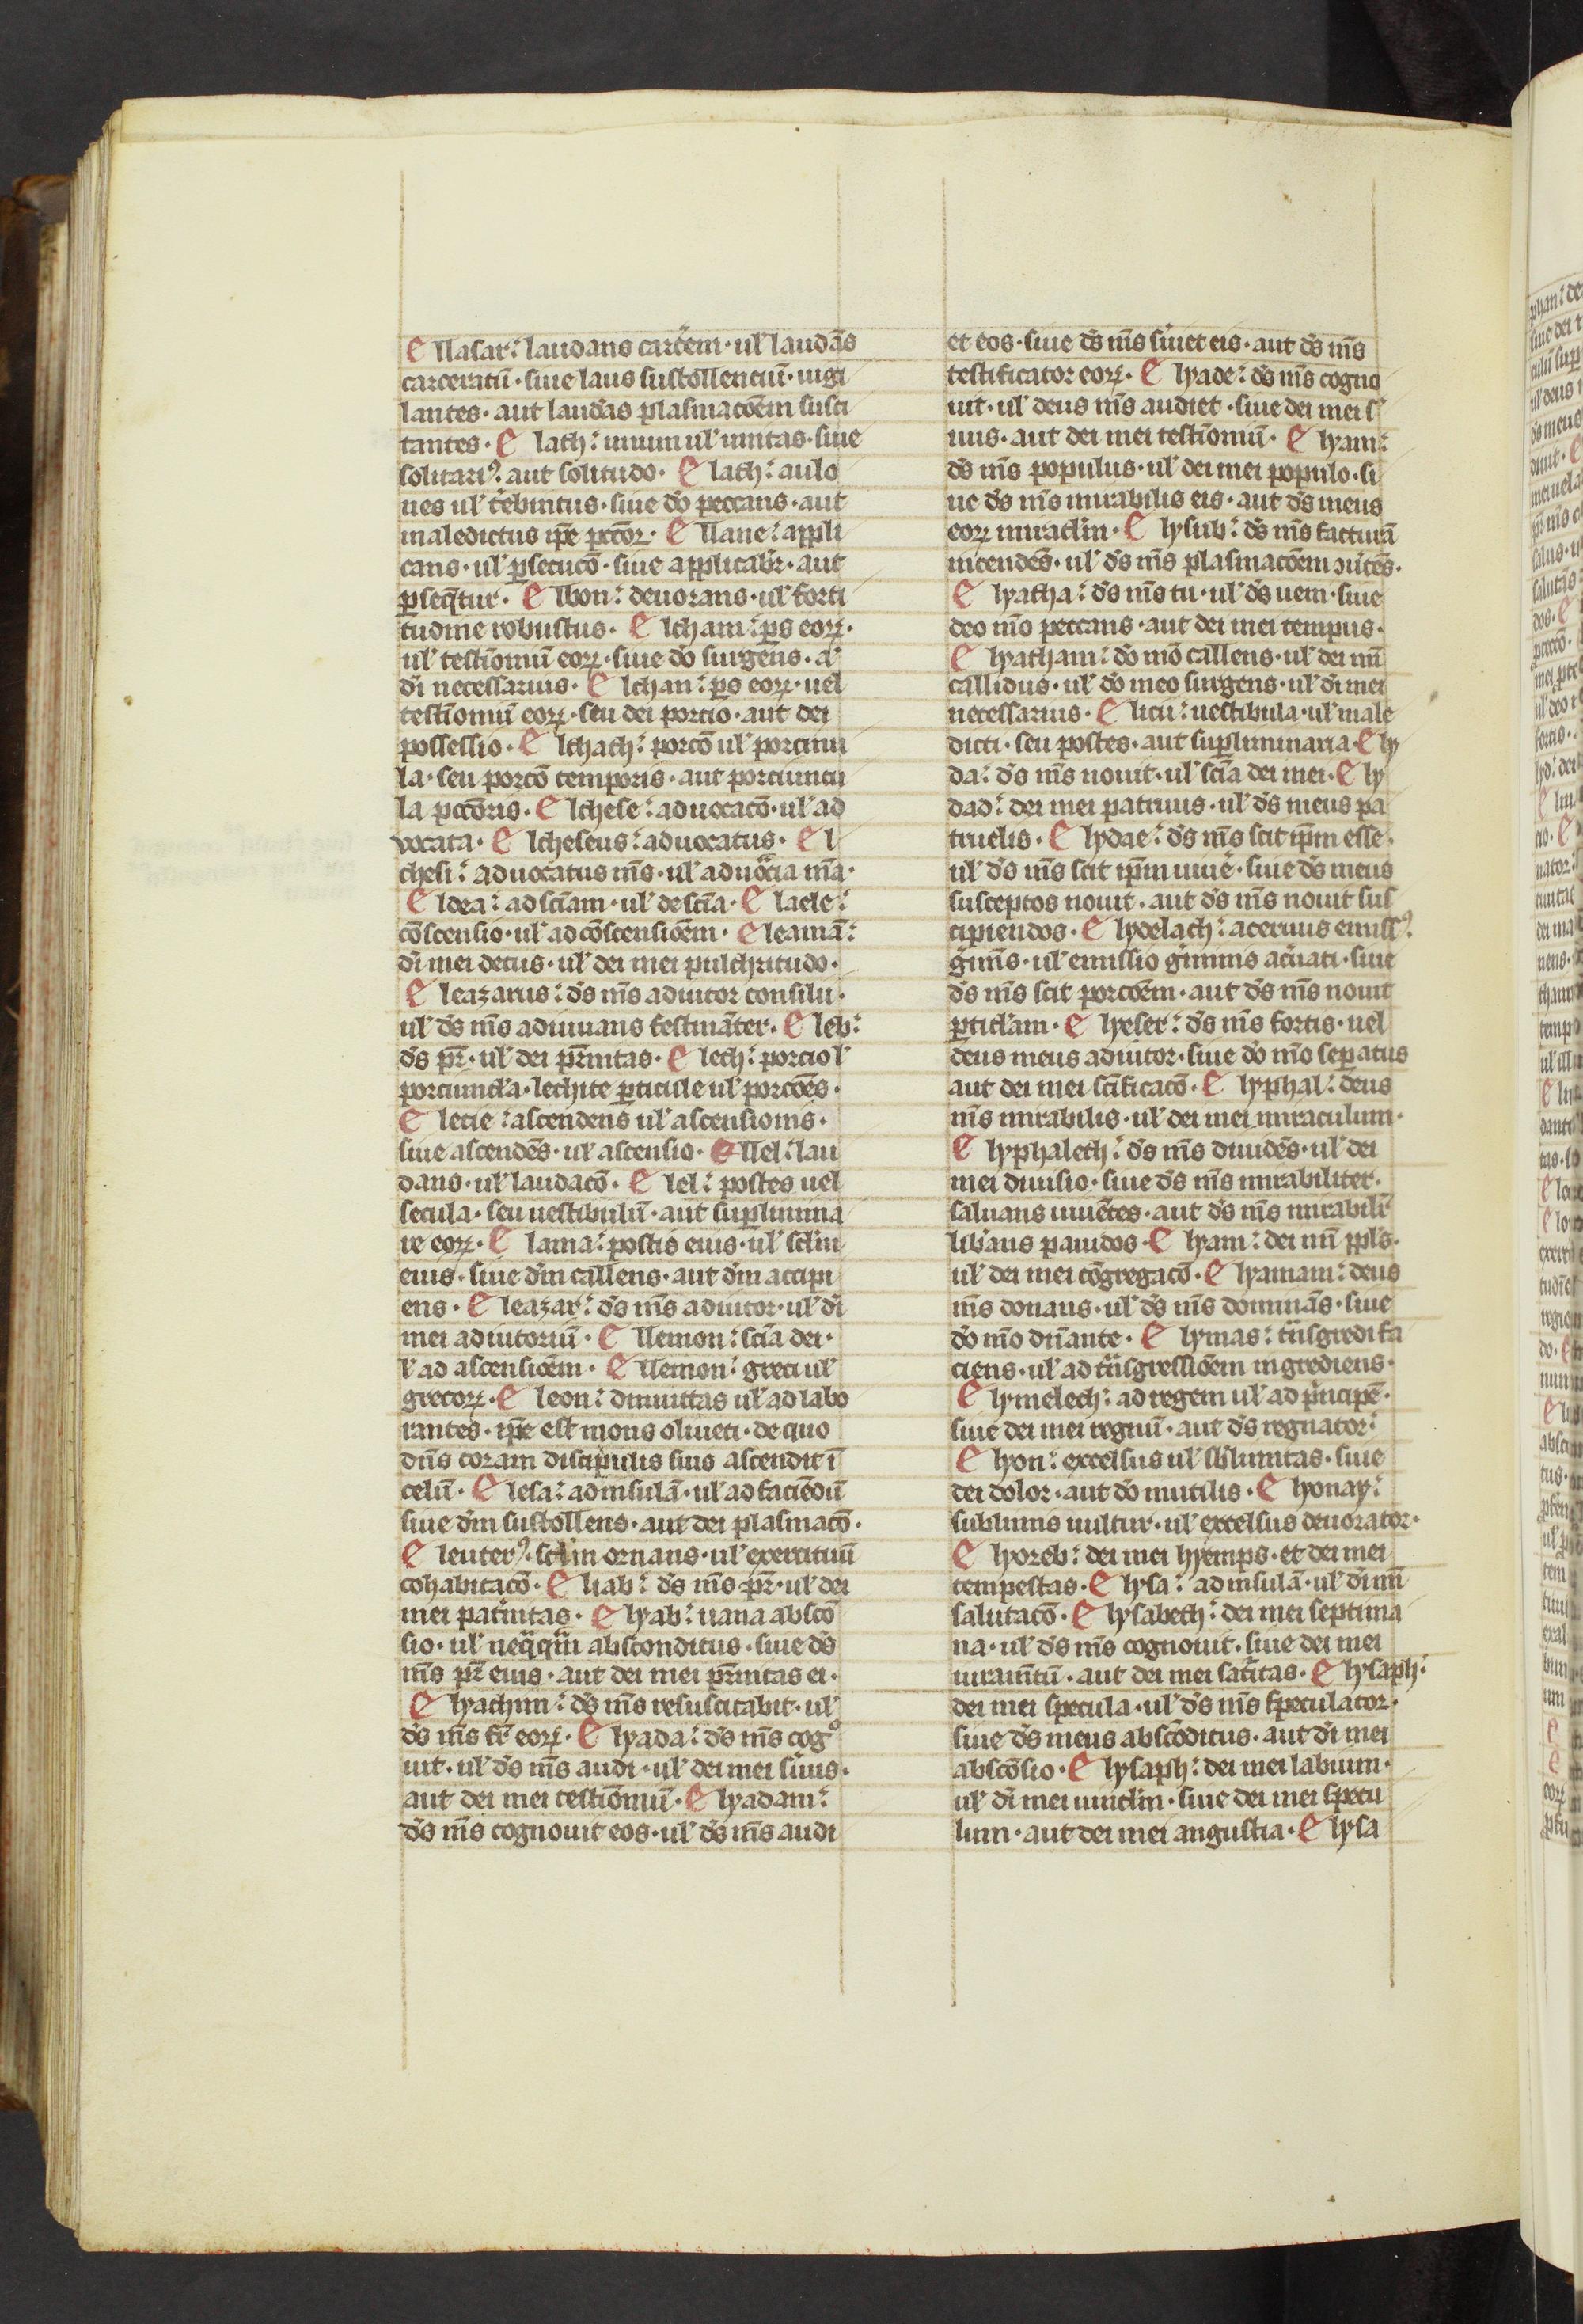 Ellasar: laudans carcem · ul' laudās
carceratū · siue laus sustollentiū · uigi
lantes · aut laudās plasmacōem susci
tantes · Elath: unum ul' unitas · siue
solitari9 aut solitudo · Elath: aulo
nes ul' tebintus · siue dō peccans · aut
maledictus ip̄e pccōꝝ · Ellane: appli
cans · ul' ꝑsecucō · siue applicabr̄ · aut
ꝑseq̄tur · Elbon: deuorans · ul' forti
tudine robustus · Elcham: ꝑs eoꝝ ·
ul' testiōniū eoꝝ · siue dō surgens · a'
dī necessarius · Elchan: ꝑs eoꝝ · uel
testiōniū eoꝝ · seu dei portio · aut dei
possessio · Elchath: porcō ul' porciun
la · seu porcō temporis · aut porciuncu
la pccōris · Elchese: aduocacō · ul' ad
vocata · Elcheseus: aduocatus · El
chesi: aduocatus m̄s · ul' aduocia m̄a ·
Eldea: ad sciām · ul' de sciā · Elaele:
cōscensio · ul' ad cōscensiōem · Eleamā:
dī mei decus · ul' dei mei pulchritudo ·
Eleazarus: dš m̄s adiutor consilii ·
ul' dš m̄s adiuuans festinānter · Eleb:
dš pr̄ · ul' dei pr̄nitas · Elech: porcio l'
porciuncl'a · lechite ꝑticule ul' porcōes ·
Elecie: ascendens ul' ascensionis ·
siue ascendēs · ul' ascensio · Ellel: lau
dans · ul' laudacō · Elel: postes uel
secula · seu uestibulū · aut suꝑlimina
re eoꝝ · Elama: postis eius · ul' scl'm
eius · siue dm̄ callens · aut dm̄ accipi
ens · Eleazar: dš m̄s adiutor · ul' dī
mei adiutoriū · Ellemon: sciā dei ·
l' ad ascensiōem · Ellemon: greci ul'
grecoꝝ · Eleon: diniuttas ul' ad labo
rantes · ip̄e est mons oliueti · de quo
dn̄s coram discipulis suis ascendit ī
celū · Elesa: ad insulā · ul' ad faciēdū
siue dm̄ sustollens · aut dei plasmacō ·
Eleuter9: scl'm ornans · ul' exercituū
cohabitacō · Eliab: dš m̄s pr̄ · ul' dei
mei patnitas · Elyab: uana absco
sio · ul' neq̄q̄m absconditus · siue dš
m̄s pr̄ eius · aut dei mei pr̄nitas ei ·
Elyachim: dš m̄s resuscitabit · ul'
dš m̄s fr̄ eoꝝ · Elyada: dš m̄s cogo
uit · ul' dš m̄s audi · ul' dei mei suus ·
aut dei mei testiōniū · Elyadam:
dš m̄s cognouit eos · ul' dš m̄s audi
et eos · siue dš m̄s suiet eis · aut dš m̄s
testificator eoꝝ · Elyade: dš m̄s cogno
uit · ul' deus m̄s audiet · siue dei mei s'
uus · aut dei mei testiōniū · Elyam:
dš m̄s populus · ul' dei mei populo · si
ue dš m̄s mirabilis eis · aut dš meus
eoꝝ miracl'm · Elysub: dš m̄s facturā
intendēs · ul' dš m̄s plasmacōem ɔuitēs ·
Elyatha: dš m̄s tu · ul' dš uem · siue
deo m̄o peccans · aut dei mei tempus ·
Elyatham: dō mō callens · ul' dei m̄i
callidus · ul' dō meo surgens · ul' dī mei
necessarius · Elicu: uestibula · ul' male
dicti · seu postes · aut suꝑliminaria · Ely
da: dš m̄s nouit · ul' sciā dei mei · Ely
dad: dei mei patruus · ul' dš meus pa
truelis · Elydae: dš m̄s scit ip̄m esse ·
ul' dš m̄s scit ip̄m uiue · siue dš meus
susceptos nouit · aut dš m̄s nouit sus
cipiendos · Elydelach: aceruus emiss9
gim̄s · ul' emissio giminis acuati · siue
dš m̄s scit porcōem · aut dš m̄s nouit
ꝑticl'am · Elyeser: dš m̄s fortis · uel
deus meus adiutor · siue dō m̄o seꝑatus
aut dei mei sc̄ificacō · Elyphal: deus
m̄s mirabilis · ul' dei mei miraculum ·
Elyphalech: dš m̄s diuidēs · ul' dei
mei diuisio · siue dš m̄s mirabiliter ·
saluans uiuētes · aut dš m̄s mirabilr̄
libans pauidos · Elyam: dei m̄i ppl's ·
ul' dei mei cōgregacō · Elyamam: deus
m̄s donans · ul' dš m̄s dominās · siue
dō m̄o dn̄ante · Elymas: tn̄sgredi fa
ciens · ul' ad tn̄sgressiōem ingrediens ·
Elymelech: ad regem ul' ad pncipē ·
siue dei mei regnū · aut dš regnator:
Elyon: excelsus ul' sbl'imitas · siue
dei dolor · aut dō inutilis · Elyonay:
sublimis uultur · ul' excelsus deuorator ·
Elyoreb: dei mei hyemps · et dei mei
tempestas · Elysa: ad insulā · ul' dī m̄i
salutacō · Elysabech: dei mei septima
na · ul' dš m̄s cognouit · siue dei mei
iuram̄tū · aut dei mei satitas · Elysaph:
dei mei specula · ul' dš m̄s speculator ·
siue dš meus abscōditus · aut dī mei
abscōsio · Elysaph: dei mei labium ·
ul' dī mei uincl'm · siue dei mei specu
lum · aut dei mei angustia · Elysa